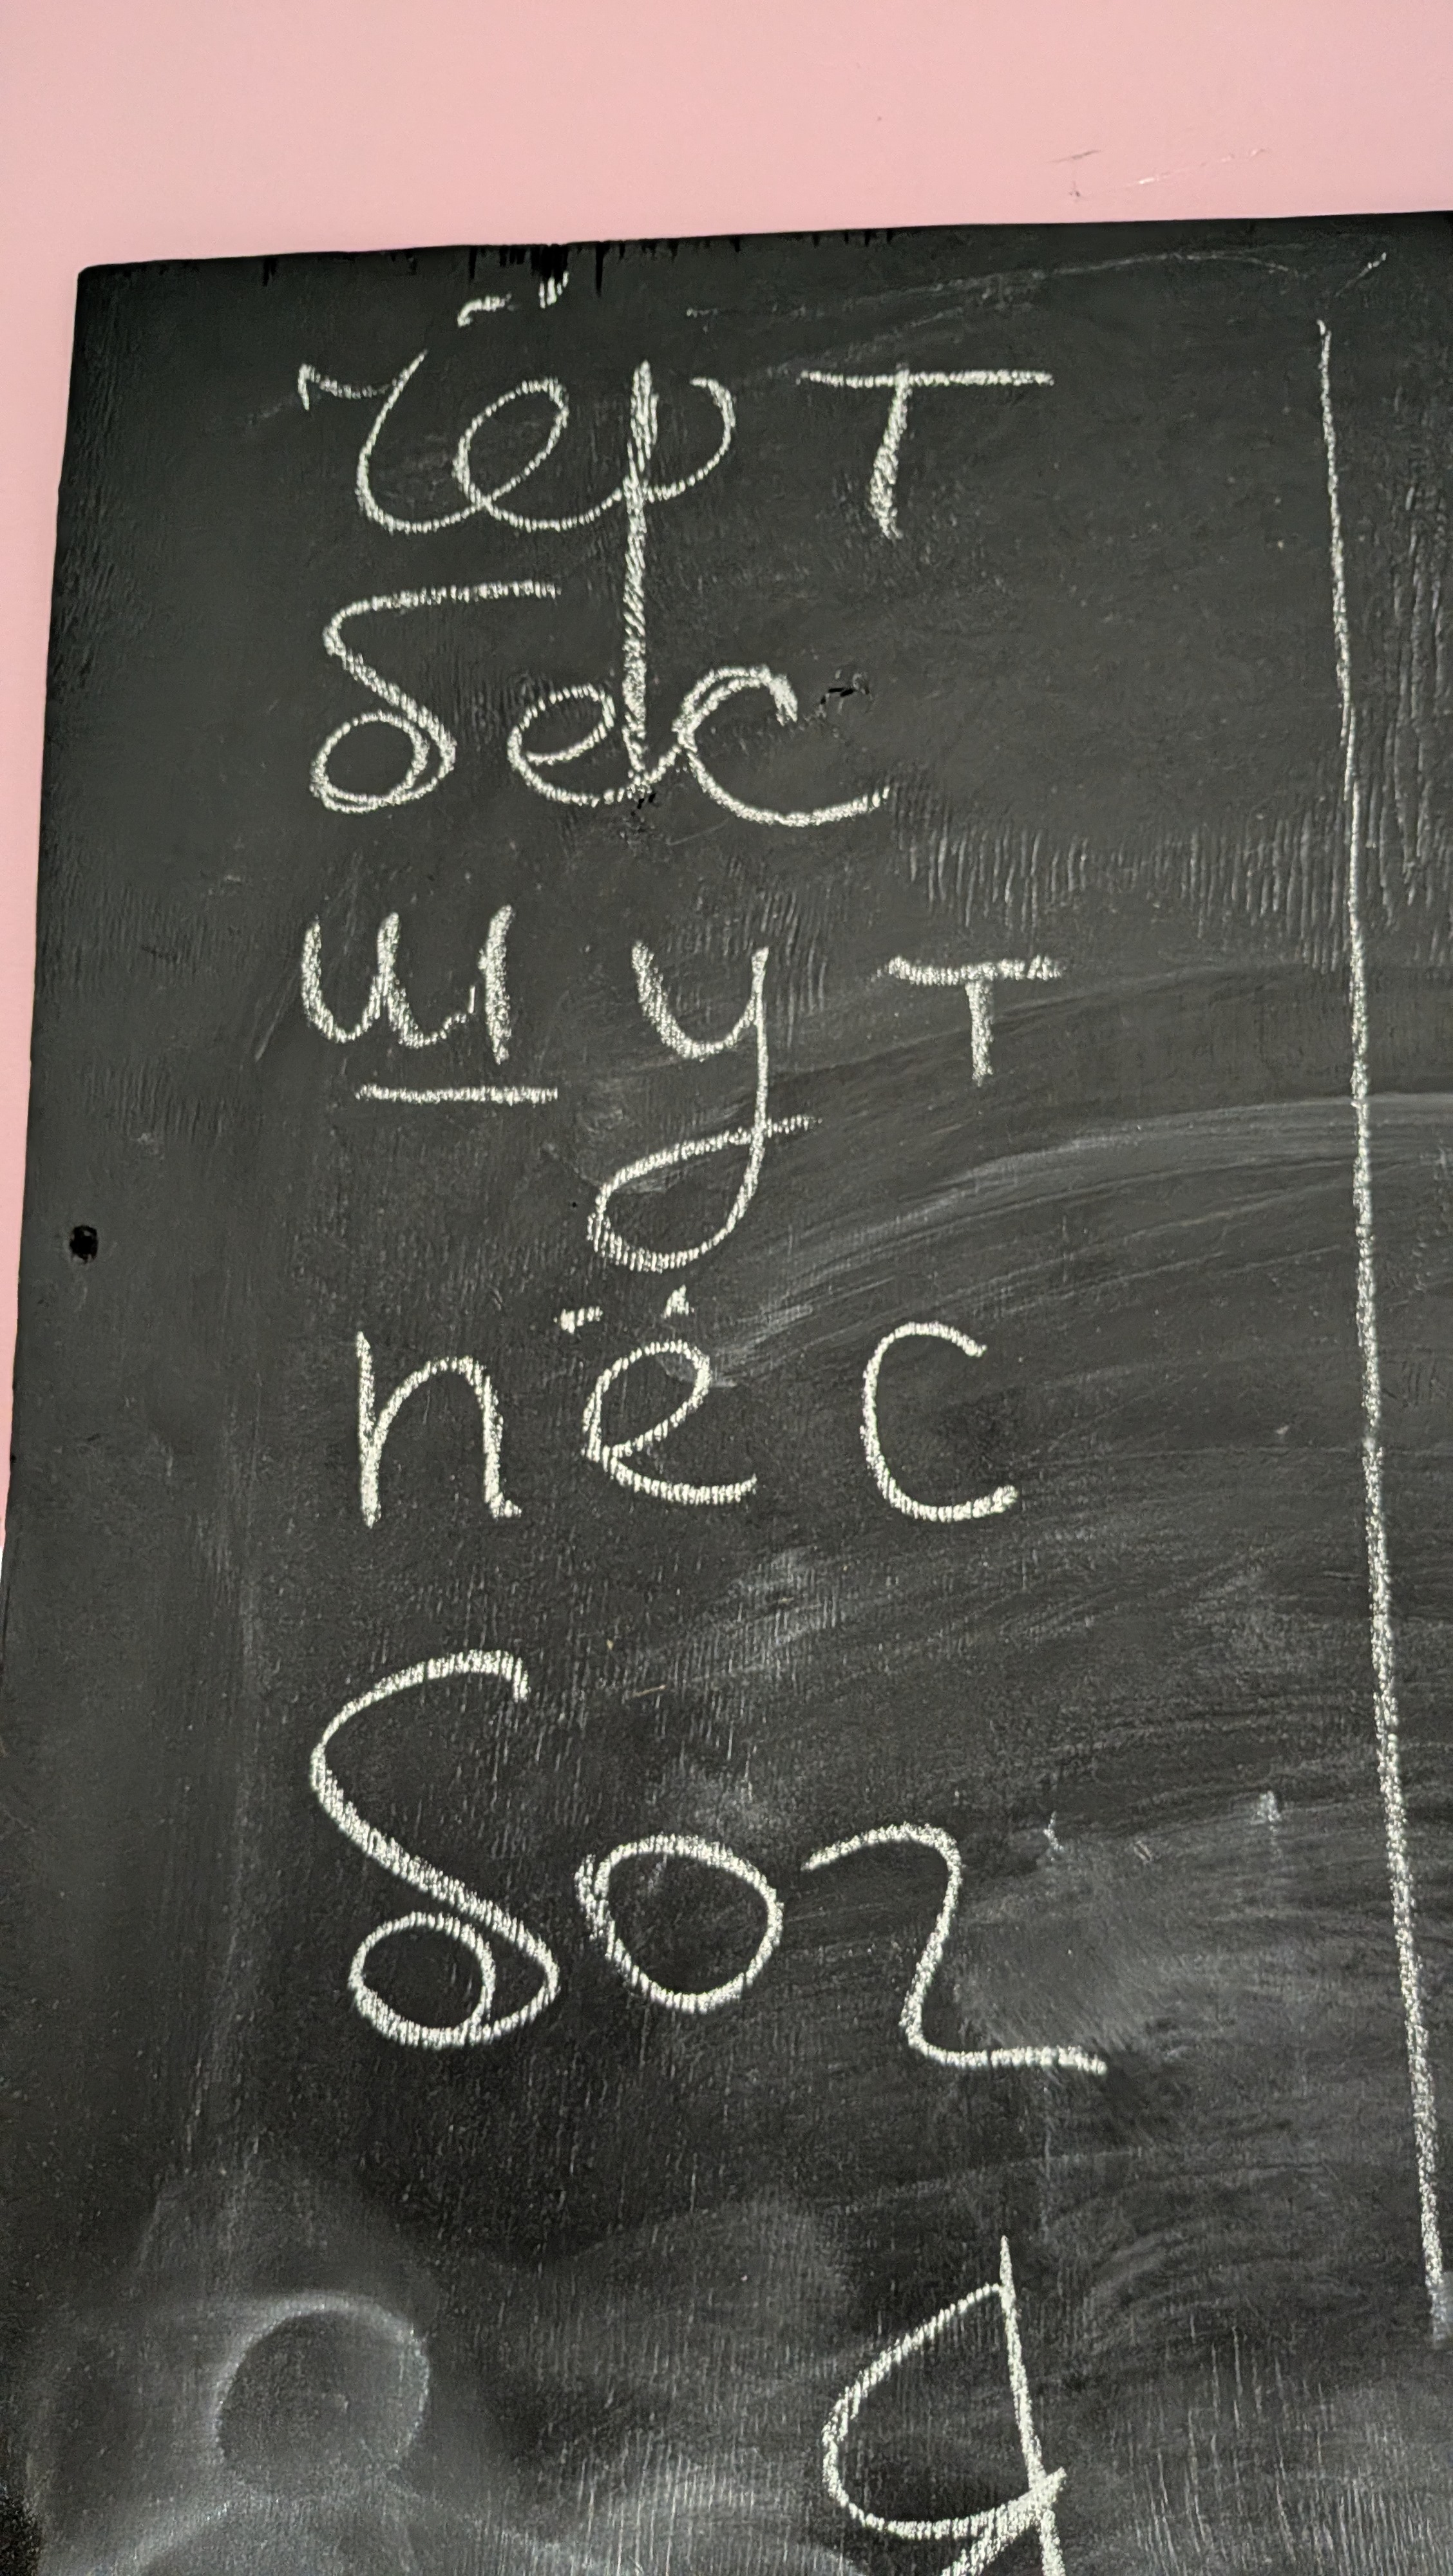 чёрт
бес
шут
пёс
бог
я